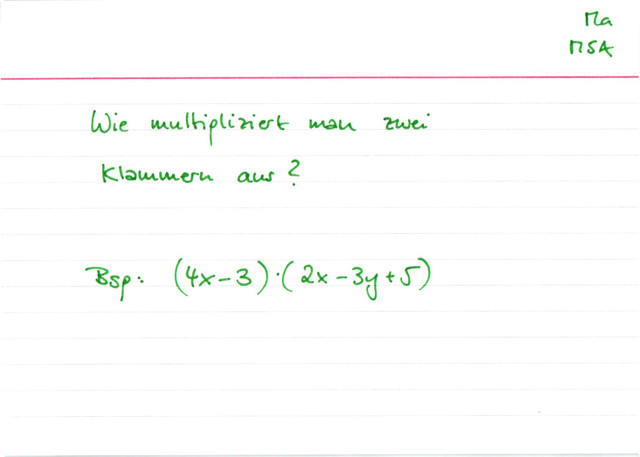 Ma
MSA
Wie multipliziert man zwei
Klammern aus?
Bsp: (4x-3)·(2x-3y+5)